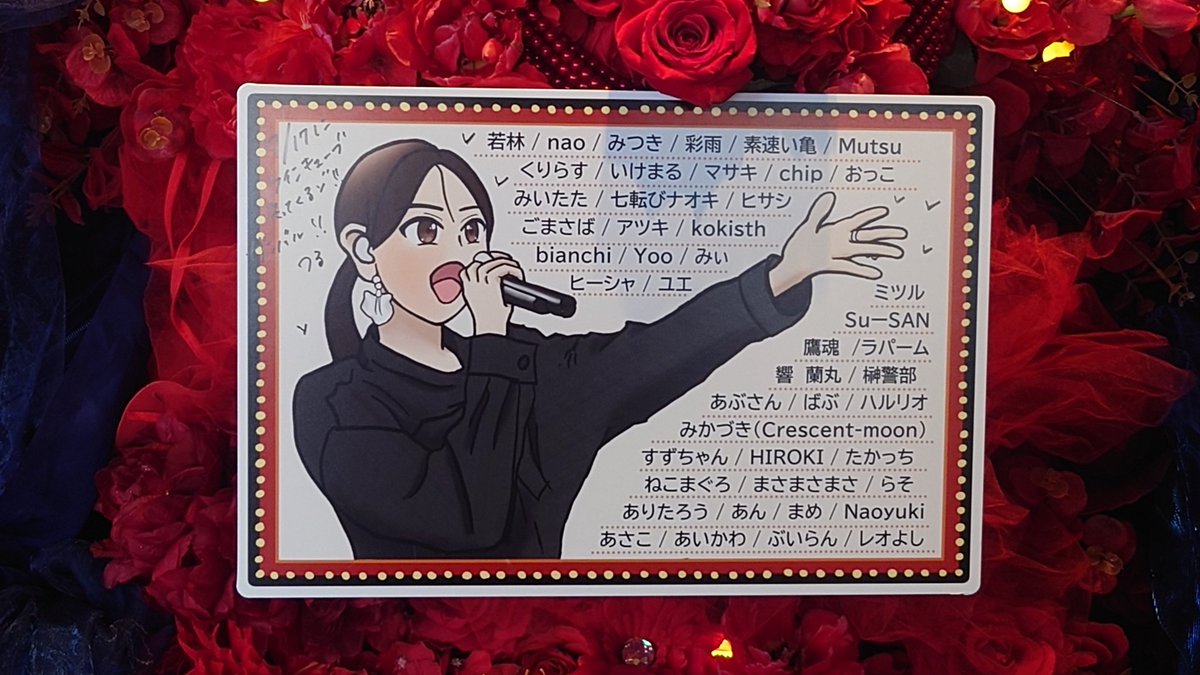 7/17に
インキューブ
くるゾ!!
つる
若林 / nao / みつき / 彩雨 / 素速い亀 / Mutsu
くりらす / いけまる / マサキ / chip / おっこ
みいたた / 七転びナオキ / ヒサシ
ごまさば / アツキ / kokisth
bianchi / Yoo / みぃ
ヒーシャ / ユエ
ミツル
SuーSAN
鷹魂 /ラパーム
響 蘭丸 / 榊警部
あぶさん / ばぶ / ハルリオ
みかづき(Crescent-moon)
すずちゃん / HIROKI / たかっち
ねこまぐろ / まさまさまさ / らそ
ありたろう / あん / まめ / Naoyuki
あさこ / あいかわ / ぶいらん / レオよし